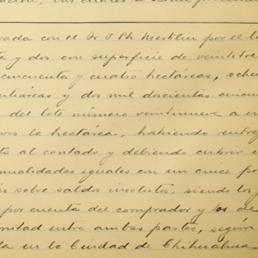 rada con el Sr. J. Ph. Mecklin por el l
ta y dos con superficie de veintitre
cuncuenta y cuatro hectáreas, oche
entiáreas y dos mil doscientas cincu
del lote número veintinueve a
vos la hectárea, habiendo entreg
to al contado y debiendo cubrir
nualidades iguales con un cinco po
és sobre saldos insolutos, siendo los
por cuenta del comprador y los de
mitad entre ambas partes, según
da en la Ciudad de Chihuahua